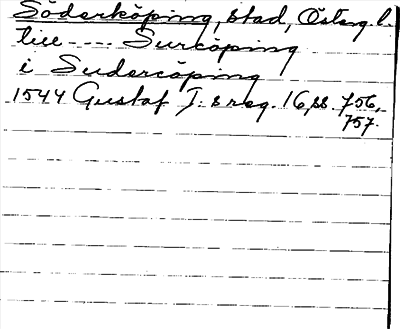 Söderköping, stad, Österg. l.
till ---- Surcöping
i Sudercöping
1544 Gustaf I:s reg. 16, ss. 756,
757.